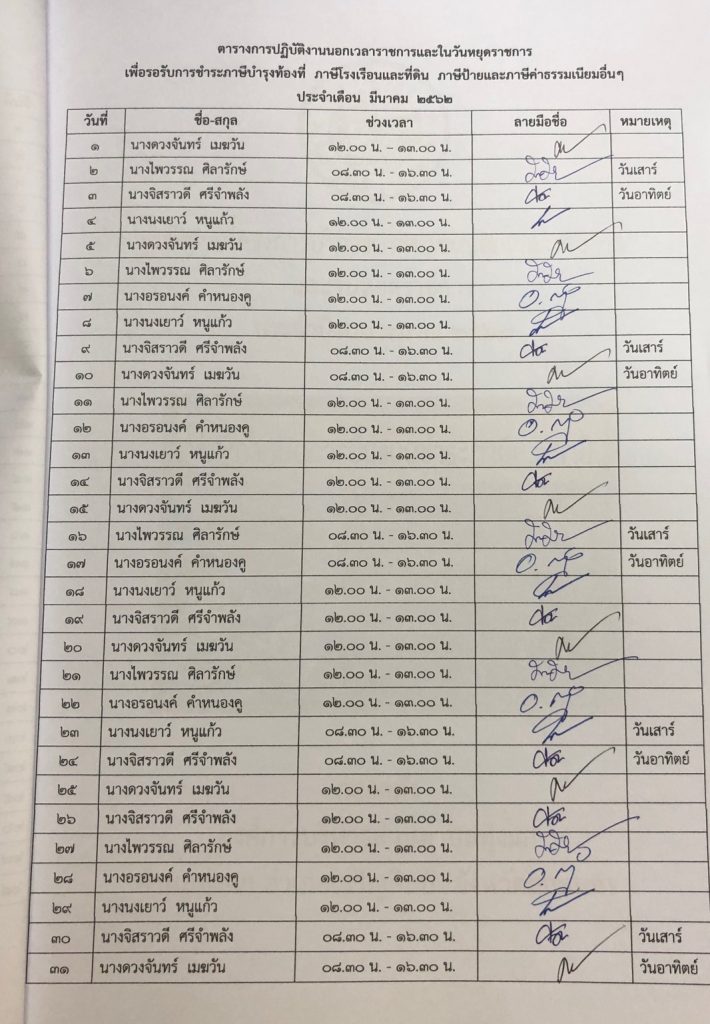 ตารางการปฏิบัติงานนอกเวลาราชการและในวันหยุดราชการ
เพื่อรอรับการชำระภาษีบำรุงท้องที่ ภาษีโรงเรือนและที่ดิน ภาษีป้ายและภาษีค่าธรรมเนียมอื่นๆ
ประจำเดือน มีนาคม ๒๕๖๒
วันที่ ชื่อ-สกุล ช่วงเวลา ลายมือชื่อ หมายเหตุ
๑ นางดวงจันทร์ เมฆวัน ๑๒.๐๐ น. – ๑๓.๐๐ น.
๒ นางไพวรรณ ศิลารักษ์ ๐๘.๓๐ น. - ๑๖.๓๐ น. วันเสาร์
๓ นางจิสราวดี ศรีจำพลัง ๐๘.๓๐ น. - ๑๖.๓๐ น. วันอาทิตย์
๔ นางนงเยาว์ หนูแก้ว ๑๒.๐๐ น. - ๑๓.๐๐ น.
๕ นางดวงจันทร์ เมฆวัน ๑๒.๐๐ น. - ๑๓.๐๐ น.
๖ นางไพวรรณ ศิลารักษ์ ๑๒.๐๐ น. - ๑๓.๐๐ น.
๗ นางอรอนงค์ คำหนองคู ๑๒.๐๐ น. - ๑๓.๐๐ น.
๘ นางนงเยาว์ หนูแก้ว ๑๒.๐๐ น. - ๑๓.๐๐ น.
๙ นางจิสราวดี ศรีจำพลัง ๐๘.๓๐ น. - ๑๖.๓๐ น. วันเสาร์
๑๐ นางดวงจันทร์ เมฆวัน ๐๘.๓๐ น. - ๑๖.๓๐ น. วันอาทิตย์
๑๑ นางไพวรรณ ศิลารักษ์ ๑๒.๐๐ น. - ๑๓.๐๐ น.
๑๒ นางอรอนงค์ คำหนองคู ๑๒.๐๐ น. - ๑๓.๐๐ น.
๑๓ นางนงเยาว์ หนูแก้ว ๑๒.๐๐ น. - ๑๓.๐๐ น.
๑๔ นางจิสราวดี ศรีจำพลัง ๑๒.๐๐ น. - ๑๓.๐๐ น.
๑๕ นางดวงจันทร์ เมฆวัน ๑๒.๐๐ น. - ๑๓.๐๐ น.
๑๖ นางไพวรรณ ศิลารักษ์ ๐๘.๓๐ น. - ๑๖.๓๐ น. วันเสาร์
๑๗ นางอรอนงค์ คำหนองคู ๐๘.๓๐ น. - ๑๖.๓๐ น. วันอาทิตย์
๑๘ นางนงเยาว์ หนูแก้ว ๑๒.๐๐ น. - ๑๓.๐๐ น.
๑๙ นางจิสราวดี ศรีจำพลัง ๑๒.๐๐ น. - ๑๓.๐๐ น.
๒๐ นางดวงจันทร์ เมฆวัน ๑๒.๐๐ น. - ๑๓.๐๐ น.
๒๑ นางไพวรรณ ศิลารักษ์ ๑๒.๐๐ น. - ๑๓.๐๐ น.
๒๒ นางอรอนงค์ คำหนองคู ๑๒.๐๐ น. - ๑๓.๐๐ น.
๒๓ นางนงเยาว์ หนูแก้ว ๐๘.๓๐ น. - ๑๖.๓๐ น. วันเสาร์
๒๔ นางจิสราวดี ศรีจำพลัง ๐๘.๓๐ น. - ๑๖.๓๐ น. วันอาทิตย์
๒๕ นางดวงจันทร์ เมฆวัน ๑๒.๐๐ น. - ๑๓.๐๐ น.
๒๖ นางจิสราวดี ศรีจำพลัง ๑๒.๐๐ น. - ๑๓.๐๐ น.
๒๗ นางไพวรรณ ศิลารักษ์ ๑๒.๐๐ น. - ๑๓.๐๐ น.
๒๘ นางอรอนงค์ คำหนองคู ๑๒.๐๐ น. - ๑๓.๐๐ น.
๒๙ นางนงเยาว์ หนูแก้ว ๑๒.๐๐ น. - ๑๓.๐๐ น.
๓๐ นางจิสราวดี ศรีจำพลัง ๐๘.๓๐ น. - ๑๖.๓๐ น. วันเสาร์
๓๑ นางดวงจันทร์ เมฆวัน ๐๘.๓๐ น. - ๑๖.๓๐ น. วันอาทิตย์